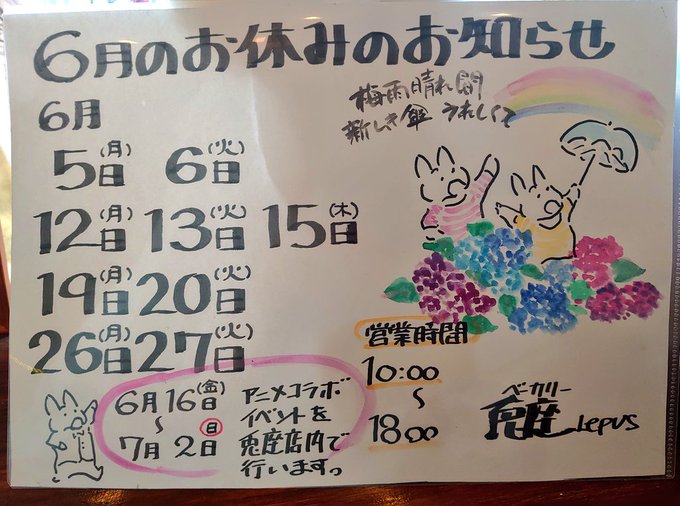 6月のお休みのお知らせ
梅雨晴れ間
新しき傘 うれしくて
6月
5日(月) 6日(火)
12日(月) 13日(火) 15日(木)
19日(月) 20日(火)
26日(月) 27日(火)
6月16日(金)
～
7月2日(日)
アニメコラボ
イベントを
兎座店内で
行います。
営業時間
10:00
～
18:00
ベーカリー
兎座 Lepus